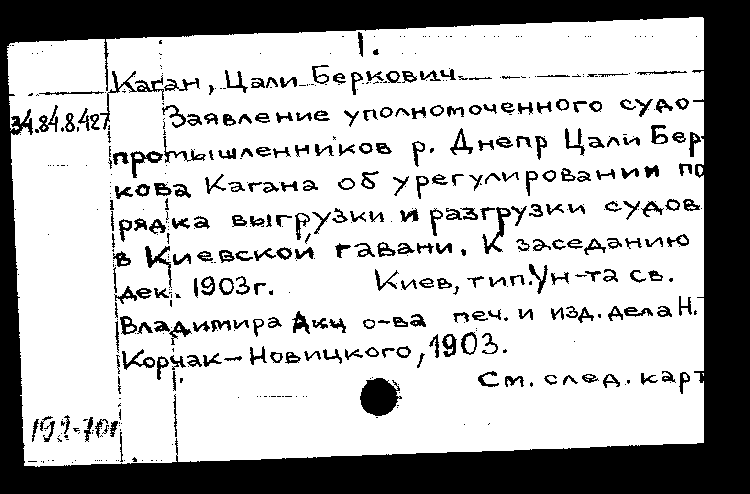 1.
Каган, Цали Беркович
34.84.8.427
Заявление уполномоченного судо-
промышленников р. Днепр Цали Бер-
кова Кагана об урегулировании по
рядка выгрузки и разгрузки судов
в Киевской гавани. К заседанию
дек. 1903г. Киев, тип. Ун-та св.
Владимира Акц о-ва печ. и изд. дела Н.Т
Корчак-Новицкого, 1903.
См. след. карт
192-70г